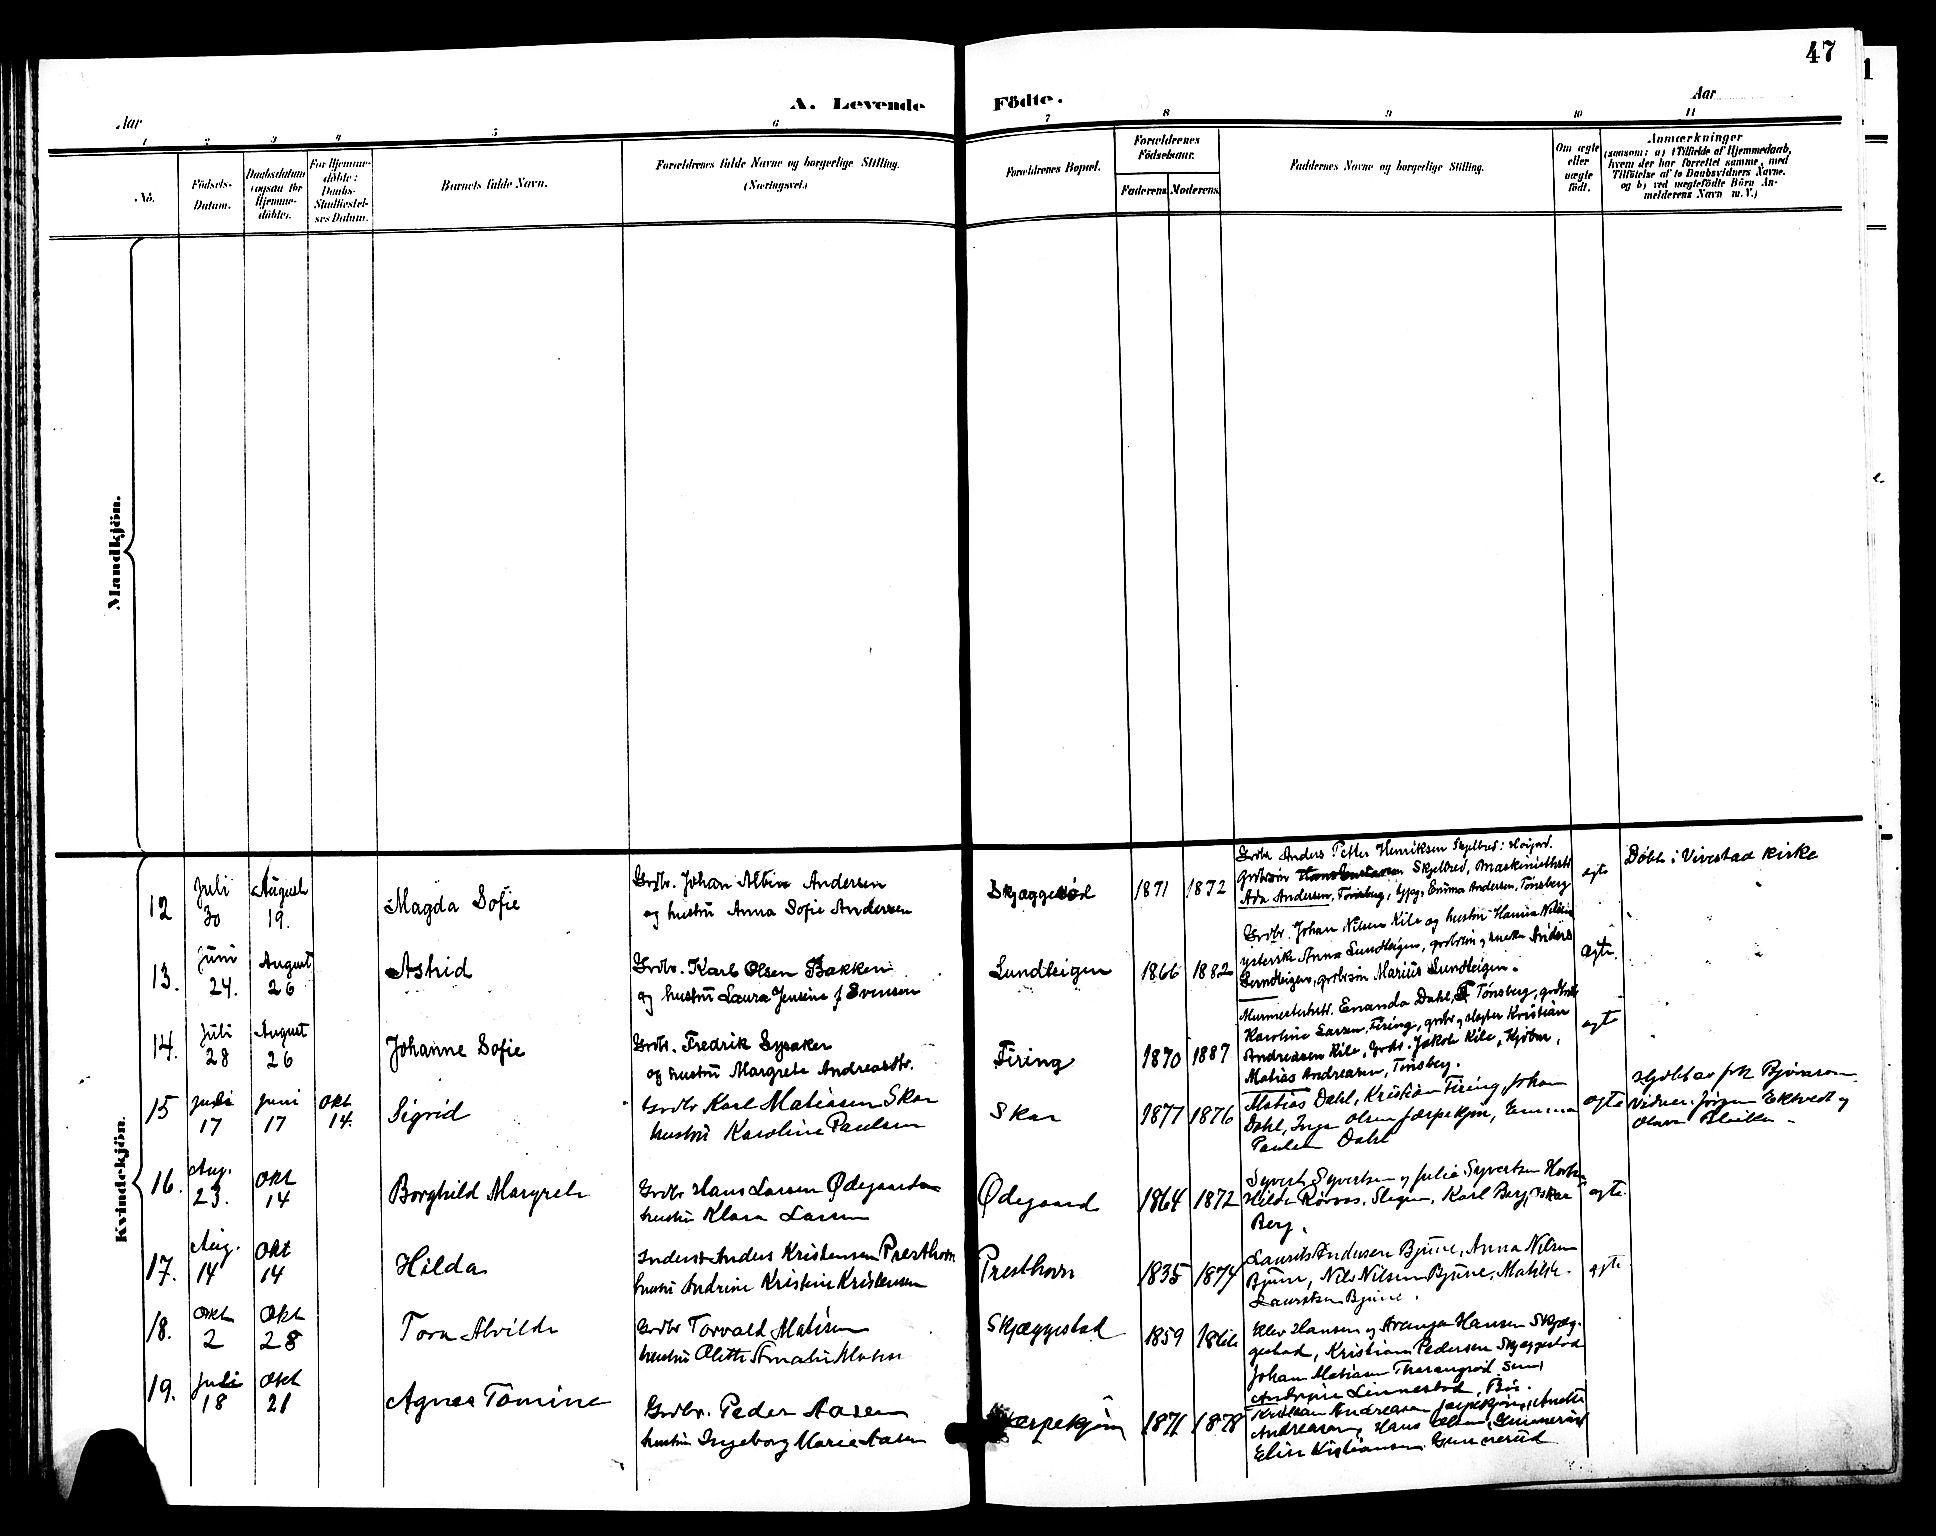 47
A. Levende Födte.
Aar
Aar
1 2 3 4 5 6 7 8 9 10 11
No.
Födsels-
Datum.
Daabsdatum
(ogsaa for
Hjemme-
döbte).
For Hjemme-
döbte:
Daabs-
Stadfæstel-
ses Datum.
Barnets fulde Navn.
Forældrenes fulde Navne og borgerlige Stilling.
(Næringsvei.)
Forældrenes Bopæl.
Forældrenes
Födselsaar.
Faderens. Moderens.
Faddernes Navne og borgerlige Stilling.
Om ægte
eller
uægte
födt.
Anmærkninger
(saasom: a) i Tilfælde af Hjemmedaab,
hvem der har forrettet samme, med
Tilföielse af to Daabsvidners Navne.
og b) ved uægtefödte Börn An-
melderens Navn m. V.)
Mandkjön.
Kvindekjön.
12
Juli
30
August
19.
Magda Sofie
Grdbr. Johan Albin Andersen
og hustru Anna Sofie Andersen
Skjæggesød
1871 1872
Grdbr Anders Petter Henriksen Skjelbred, Høijord.
Grdbrsøn Hans Gustavsen Skjelbred, Maskinisthustr
Ada Andersen, Tønsberg, Emma Andersen, Tønsberg
ægte
Døbt i Vivestad kirke
13.
Juni
24.
August
26
Astrid
Grdbr. Karl Olsen Bakken
og hustru Laura Jensine f Svensen
Lundteigen
1866 1882
Grdbr. Johan Nilsen Kile og hustru Hanna Nilsen
Anna Lundteigen, grdbrsøn og Anders
Lundteigen, grdbrsøn Marius Lundteigen.
Ægte.
14.
Juli
28
August
26
Johanne Sofie
Grdbr. Fredrik
og hustru Margrete Andreasdtr.
Firing
1870 1887
Murmesterhustr. Enanda Dahl, Tønsberg,
Karoline Larsen, Firing, grdbr og Kristian
Andreasen Kile, Grdb. Jakob Kile,
Matias Andreasen, Tønsberg.
ægte
15
Juni
17
Juni
17
Okt
14.
Sigrid
Grdbr Karl Matiasen Skar
hustru Karoline Paulsen
Skar
1877 1876
Matias Dahl, Kristian Firing, Johan
Dahl, Inga Olsen Jærpekjøn, Emma
Paulsen Dahl
ægte
Hjdbt av frk Bjørnson
Vidner: Jørgen Ektvedt og
16.
Aug.
23.
Okt
14
Borghild Margrete
Grdbr Hans Larsen Ødegaarden
hustru Klara Larsen
Ødegaard
1864 1872
Syvert Syvertsen og Julia Syvertsen
Hilda Slagen, Karl Berg,
Berg.
ægte.
17.
Aug.
14
Okt
14
Hilda
Inderst Anders Kristensen Presthovn
hustru Andrine Kristine Kristensen
Presthovn
1835 1874
Laurits Andersen Bjune, Anna Nilsen
Bjune, Nils Nilsen Bjune, Matilde
Lauritsen Bjune.
ægte
18.
Okt
2
Okt
28
Tora Alvilde
Grdbr Torvald Matisen
hustru
Skjæggestad
1859
Elev Hansen og Hansen Skjæg-
gestad, Kristian Pedersen Skjæggestad
Johan Matiasen
Linnestad,
19.
Juli
18
Okt
21
Agnes Tomine
Grdbr. Peder Aasen
hustru Ingeborg Marie Aasen
Jærpekjøn
1871 1878
Kristian Andreasen Jærpekjøn,
Andreasen, Hans Olsen,
Elise Kristiansen Gunnerød